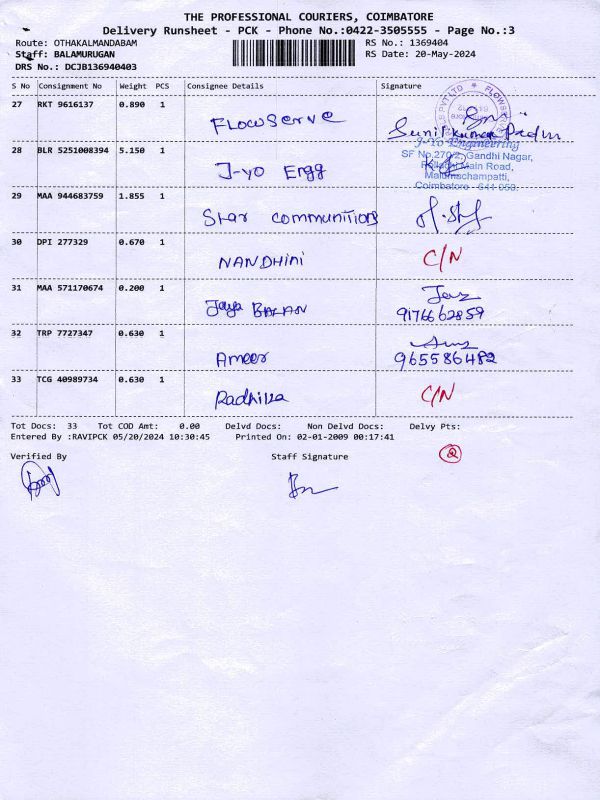 THE PROFESSIONAL COURIERS, COIMBATORE
Delivery Runsheet - PCK - Phone No.:0422-3505555 - Page No.:3
Route: OTHAKALMANDABAM RS No.: 1369404
Staff: BALAMURUGAN RS Date: 20-May-2024
DRS No.: DCJB136940403
S No Consignment No Weight PCS Consignee Details Signature
27 RKT 9616137 0.890 1
Flowserve Sunil kumar
28 BLR 5251008394 5.150 1
J-yo Engg
J-Yo Engineering
SF No.270/2, Gandhi Nagar,
Pollachi Main Road,
Malumachampatti,
Coimbatore - 641 050.
29 MAA 944683759 1.855 1
Star communitions
30 DPI 277329 0.670 1
NANDHini C/N
31 MAA 571170674 0.200 1
Jaya BALAN 9176662859
32 TRP 7727347 0.630 1
Ameer 965586482
33 TCG 40989734 0.630 1
Radhika C/N
Tot Docs: 33 Tot COD Amt: 0.00 Delvd Docs: Non Delvd Docs: Delvy Pts:
Entered By :RAVIPCK 05/20/2024 10:30:45 Printed On: 02-01-2009 00:17:41
Verified By Staff Signature